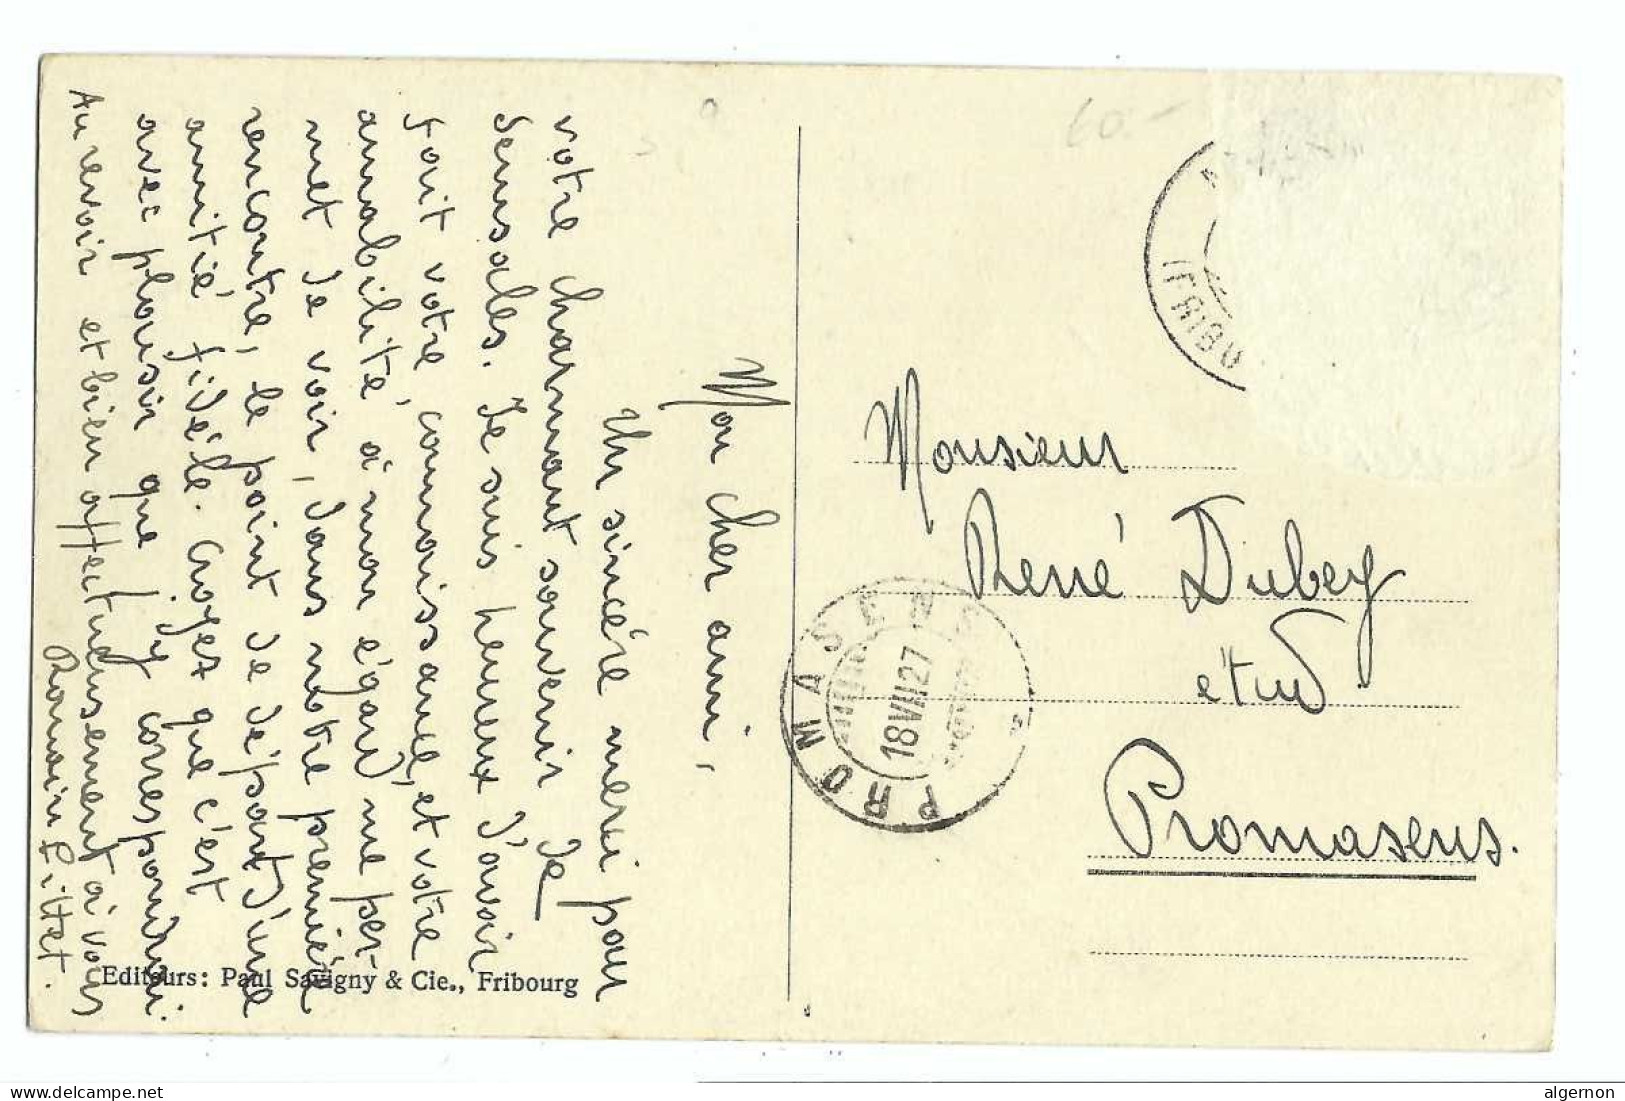 Mon cher ami,
Un sincère merci pour
votre charmant souvenir de
Semsales. Je suis heureux d'avoir
fait votre connaissance, et votre
amabilité à mon égard me per-
met de voir, dans notre première
rencontre, le point de départ d'une
amitié fidèle. Croyez que c'est
avec plaisir que j'y correspondrai.
Au revoir et bien affectueusement à vous
Romain Pittet.
Editeurs: Paul Savigny & Cie., Fribourg
60.-
(FRIBO
Monsieur
René Dubey
étud
Promasens.
PROMASENS
18 VIII 27
delcampe.net
algernon